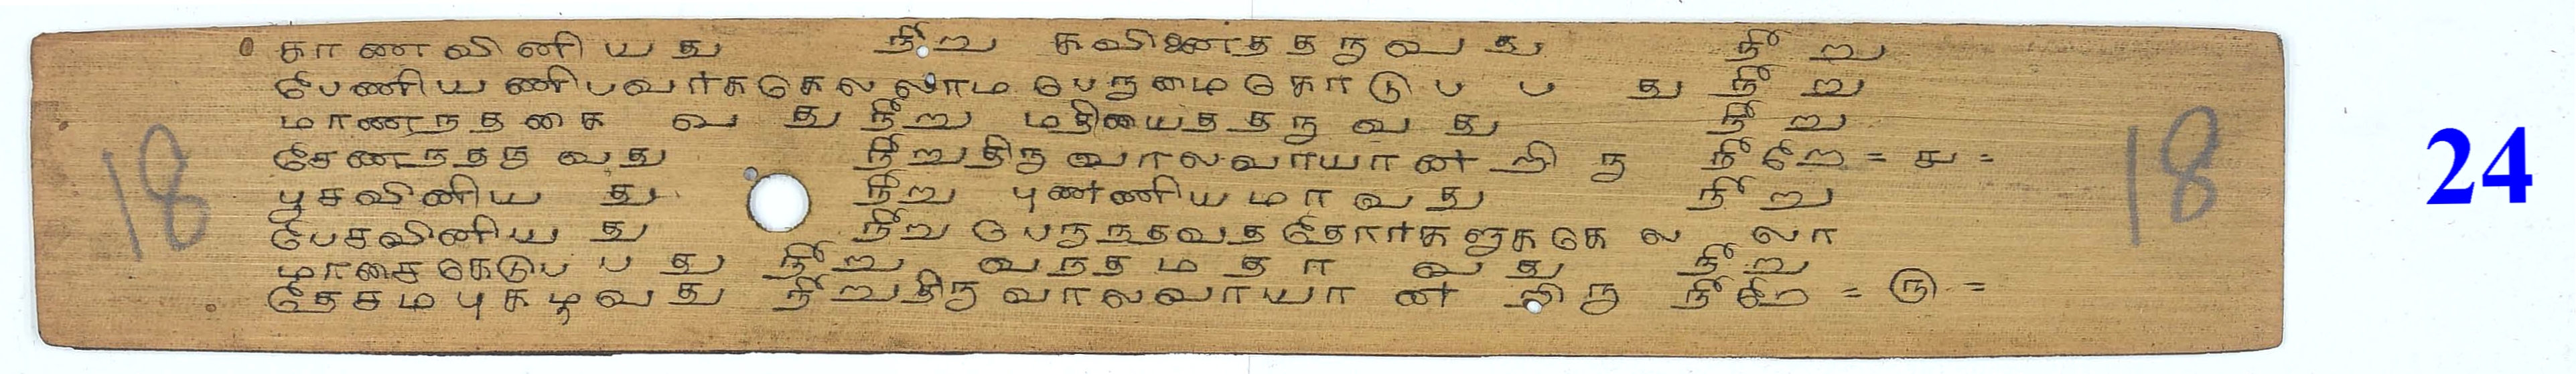 காணவினியது நீறு கவினைத்தருவது நீறு
பேணியணிபவர்க்கெல்லாம பெருமைகொடுபபது நீறு
மாணநதகைவது நீறு மதியைத்தருவது நீறு
சேணநதருவது நீறு திருவாலவாயான் றிருநீறே = ௪ =
பூசவினியது நீறு புண்ணியமாவது நீறு
பேசவினியது நீறு பெருநதவததோர்களுககெலலா
மாசைகெடுபபது நீறு வநதமதாவது நீறு
தேசமபுகழ்வது நீறு திருவாலவாயான் றிருநீறே = ௫ =
18
18
24